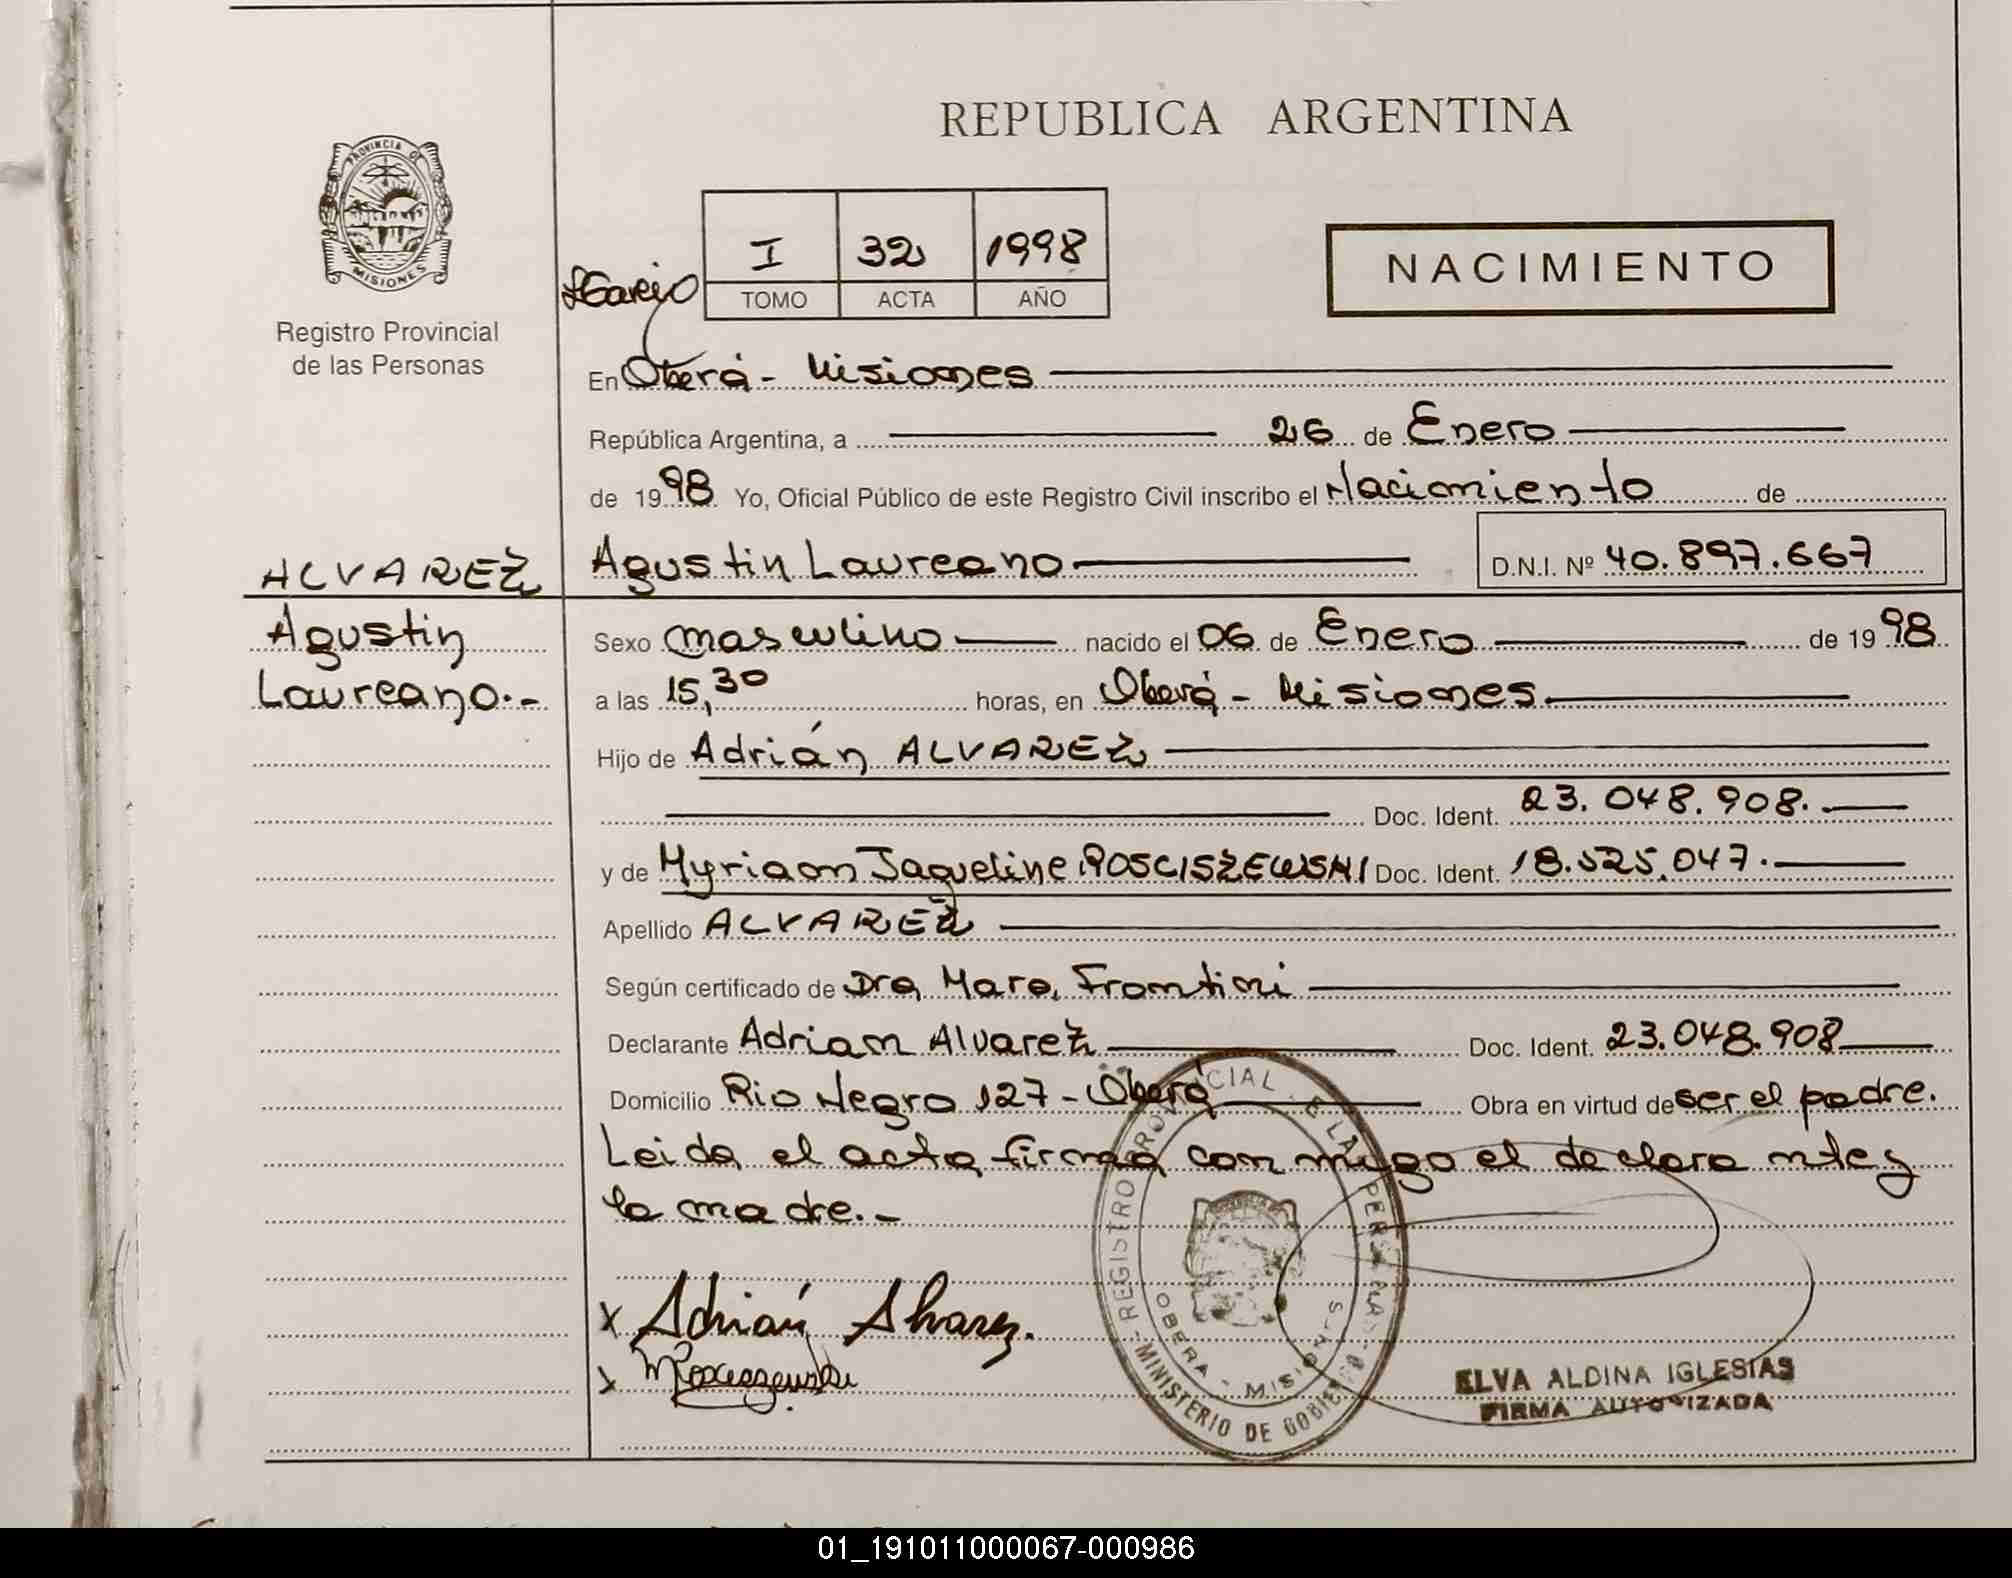 REPUBLICA ARGENTINA
PROVINCIA DE
MISIONES
Registro Provincial
de las Personas
I 32 1998
TOMO ACTA AÑO
NACIMIENTO
En Oberá - Misiones
República Argentina, a 26 de Enero
de 1998 Yo, Oficial Público de este Registro Civil inscribo el Nacimiento de
ALVAREZ
Agustin
Laureano.-
Agustin Laureano D.N.I. Nº 40.897.667
Sexo masculino nacido el 06 de Enero de 1998
a las 15,30 horas, en Oberá - Misiones
Hijo de Adrián ALVAREZ
Doc. Ident. 23.048.908.
y de Myriam Jaqueline ROSCISZEWSKI Doc. Ident. 18.525.047.
Apellido ALVAREZ
Según certificado de Dra Mara Frontini
Declarante Adrian Alvarez Doc. Ident. 23.048.908
Domicilio Rio Negro 127 - Oberá Obra en virtud de ser el padre.
Leida el acta firma con migo el declara nte y
la madre.-
x Adrián Alvarez.
x
REGISTRO PROVINCIAL DE LAS PERSONAS
OBERA - MISIONES
MINISTERIO DE GOBIERNO
ELVA ALDINA IGLESIAS
FIRMA AUTORIZADA
01_191011000067-000986